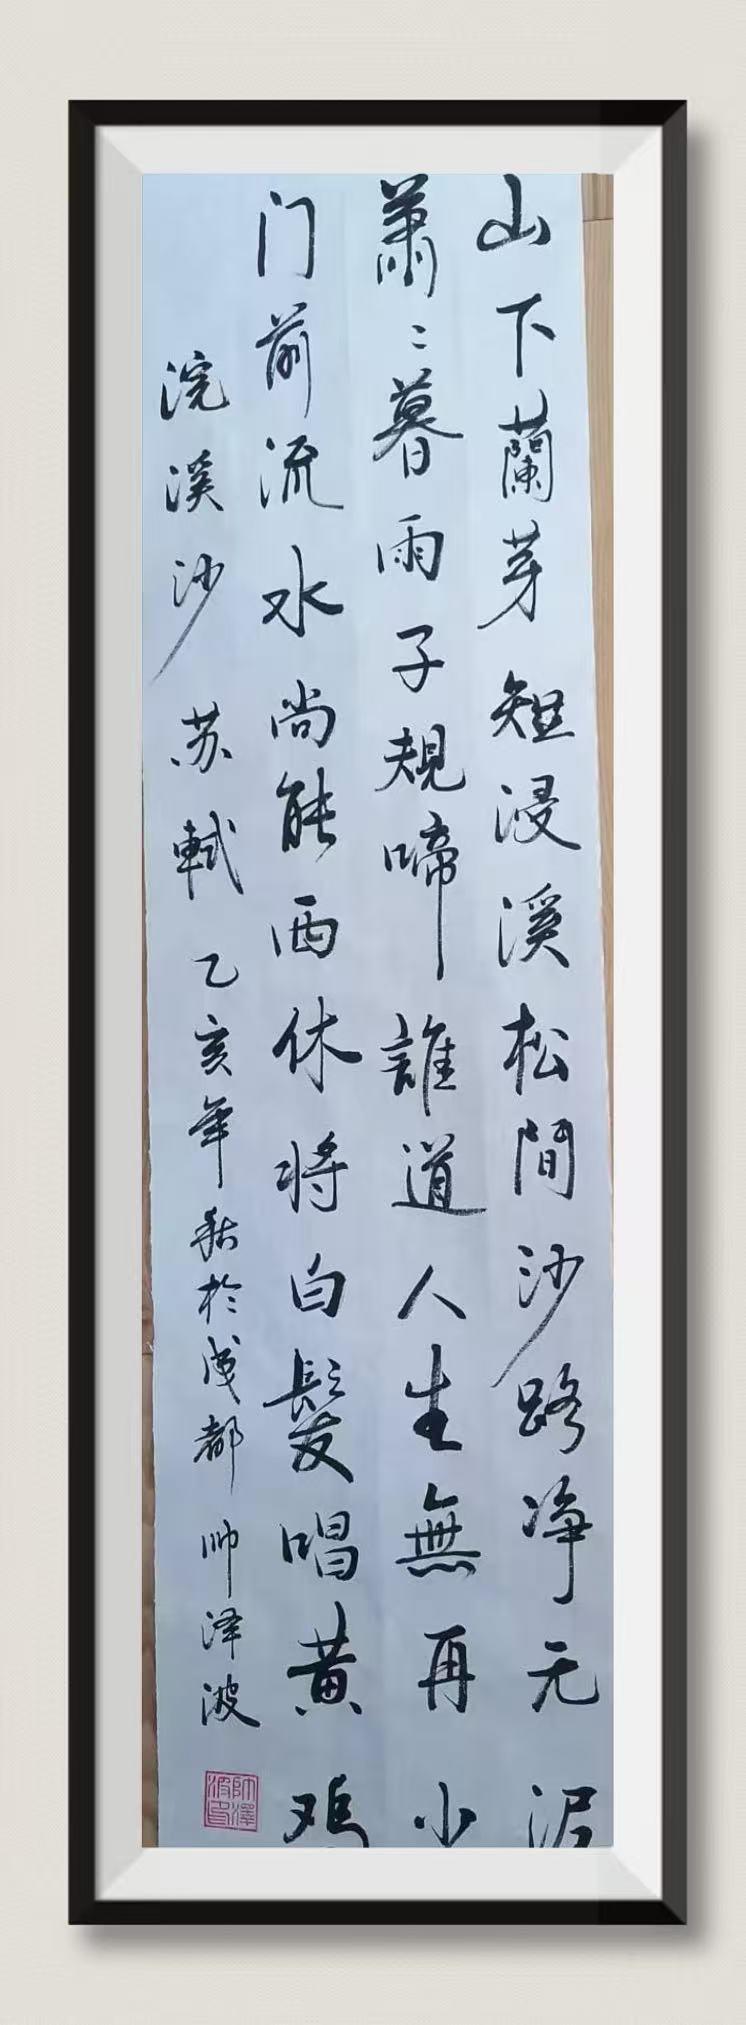 山下蘭芽短浸溪松間沙路净无泥
萧〻暮雨子規啼誰道人生無再小
门前流水尚能西休将白髮唱黄鸡
浣溪沙 苏軾 乙亥年秋於成都 帅泽波
帅澤波印